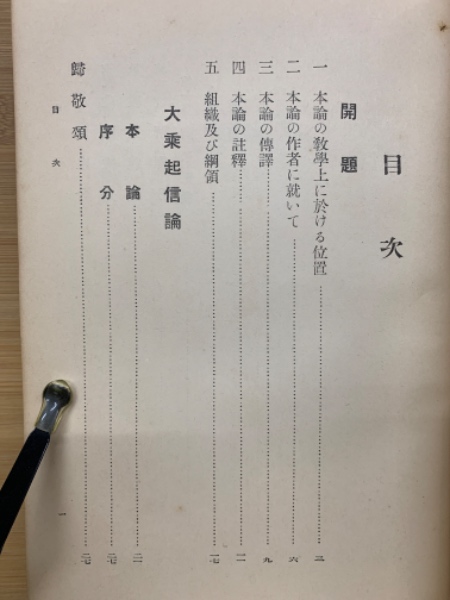 目次
開題
一 本論の敎學上に於ける位置
二 本論の作者に就いて 六
三 本論の傳譯 九
四 本論の註釋
五 組織及び綱領 一七
大乘起信論
本論
序分 二七
歸敬頌 二七
目次
一